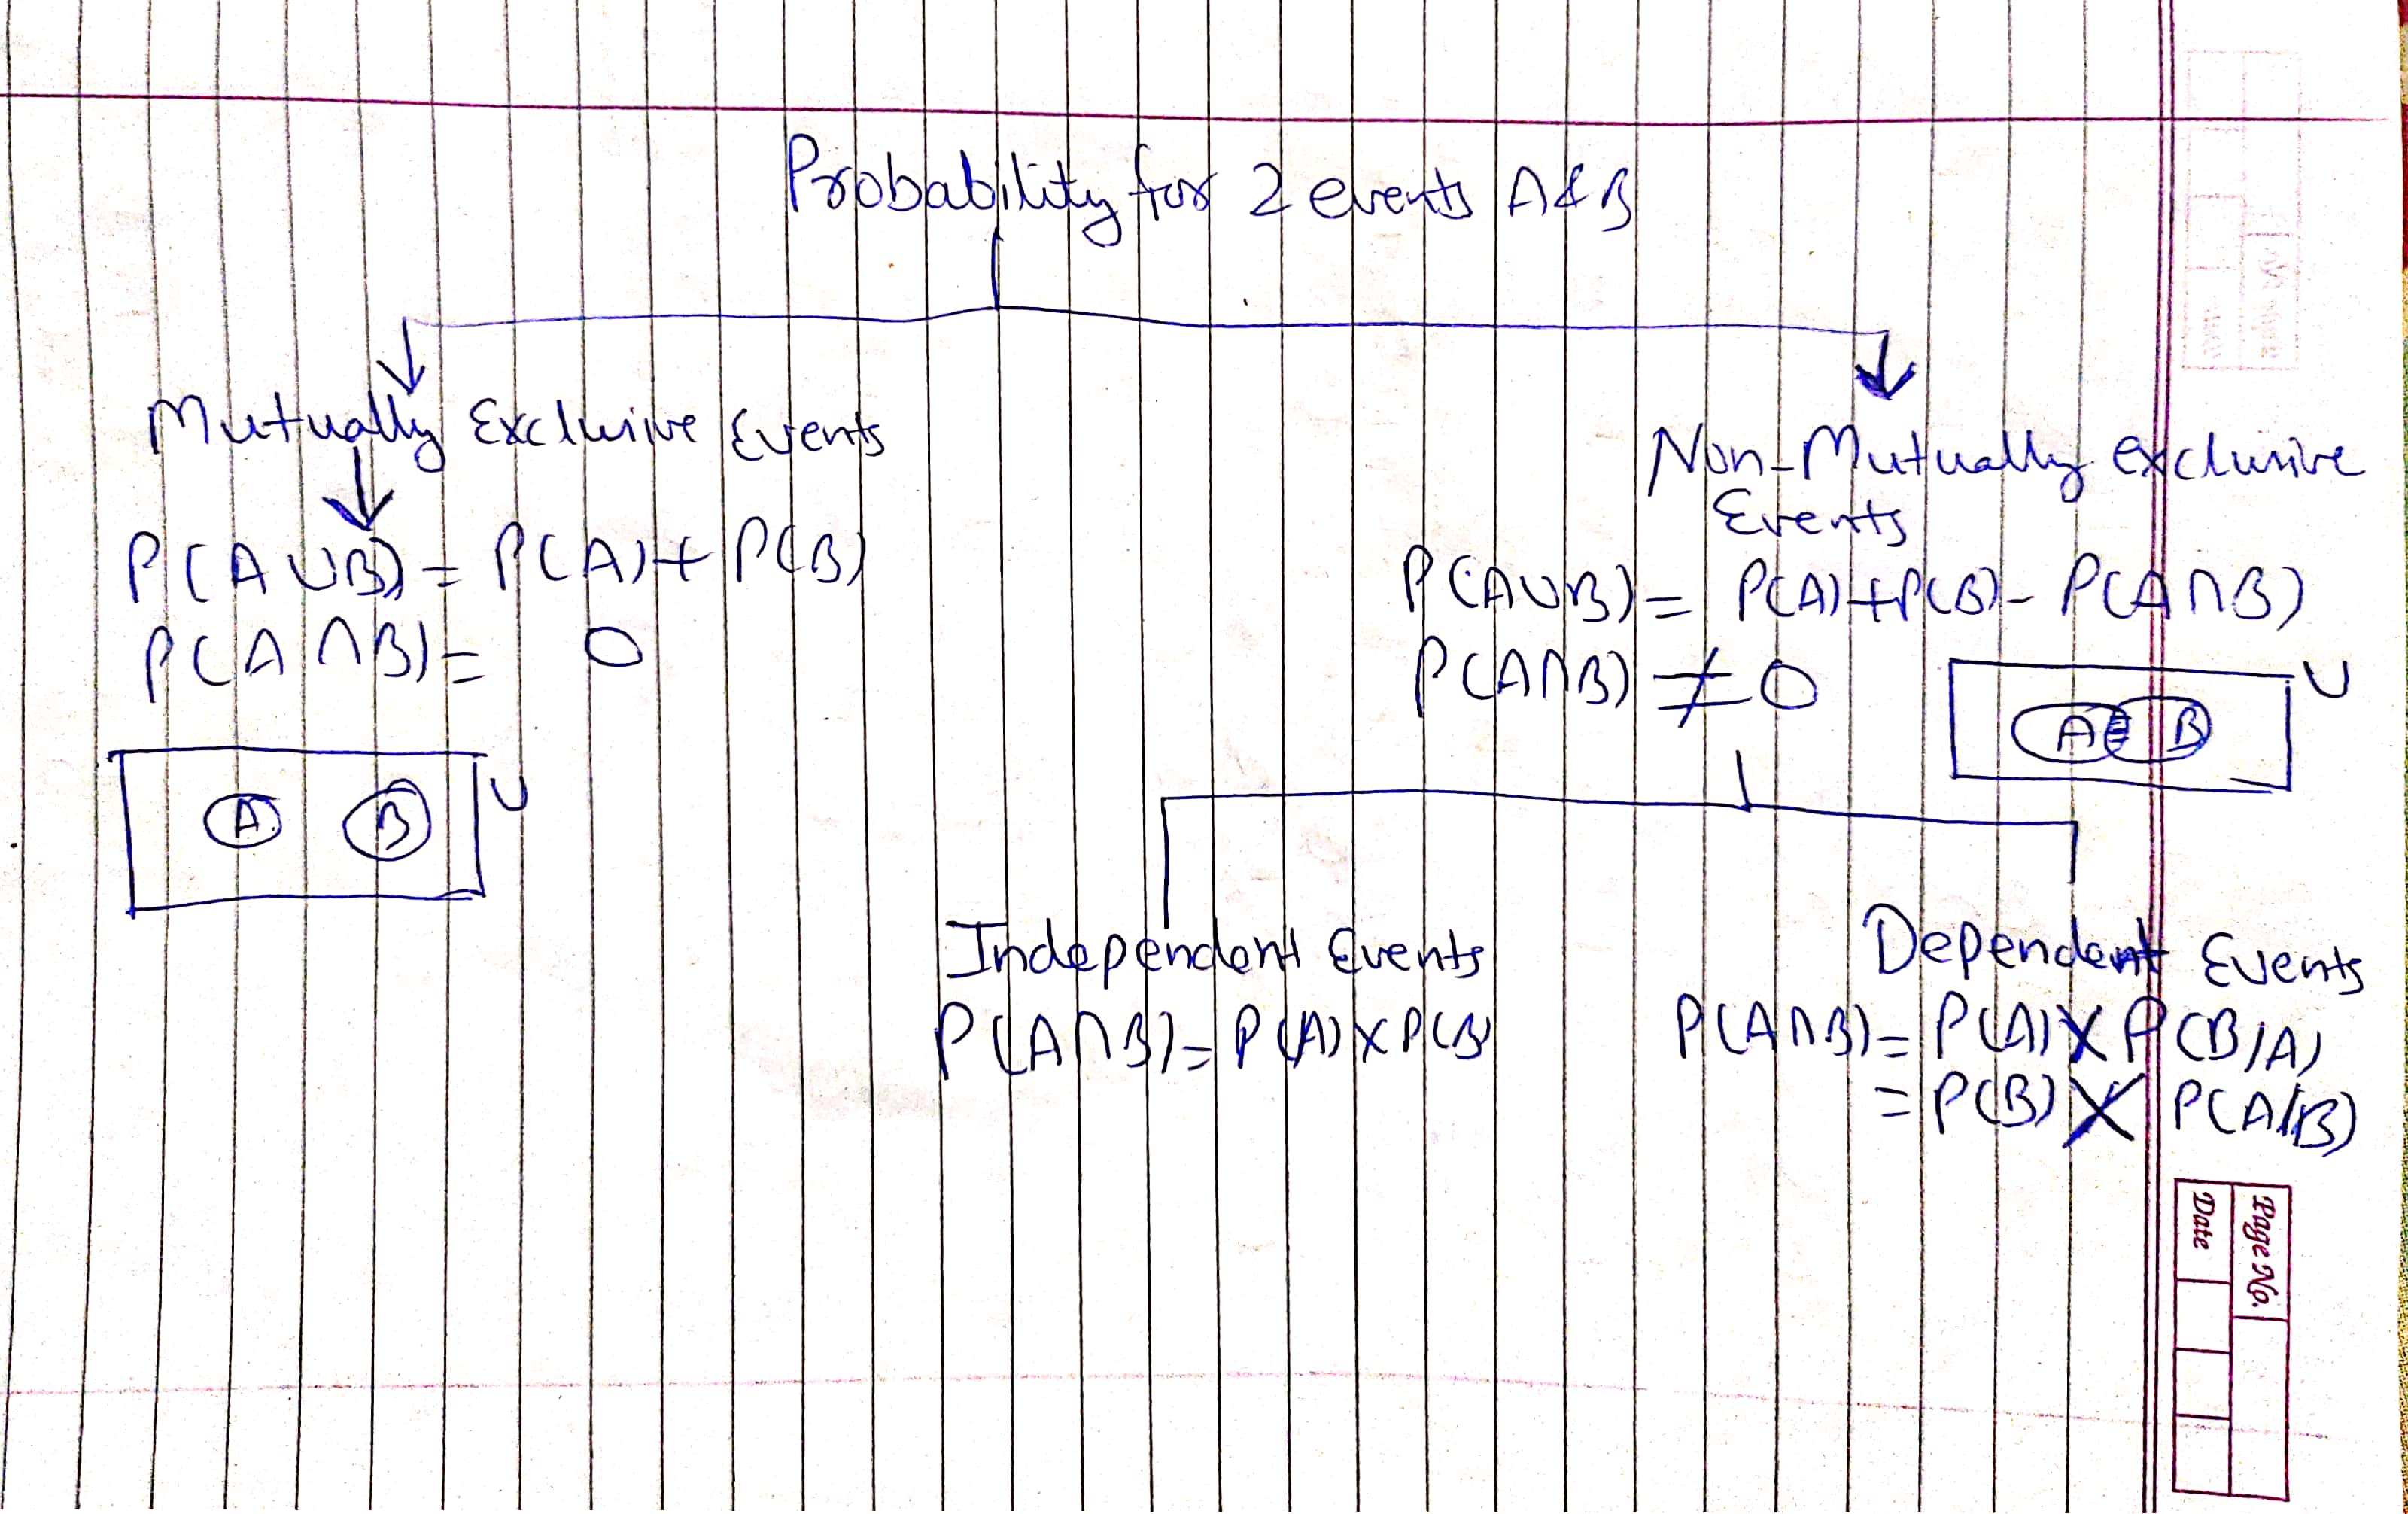 Probability for 2 events A & B
Mutually Exclusive Events
P(A∪B) = P(A) + P(B)
P(A∩B) = 0
A B U
Non-Mutually exclusive
Events
P(A∪B) = P(A)+P(B) - P(A∩B)
P(A∩B) ≠ 0
A B U
Independent Events
P(A∩B) = P(A) × P(B)
Dependent Events
P(A∩B) = P(A) × P(B/A)
= P(B) × P(A/B)
Page No.
Date